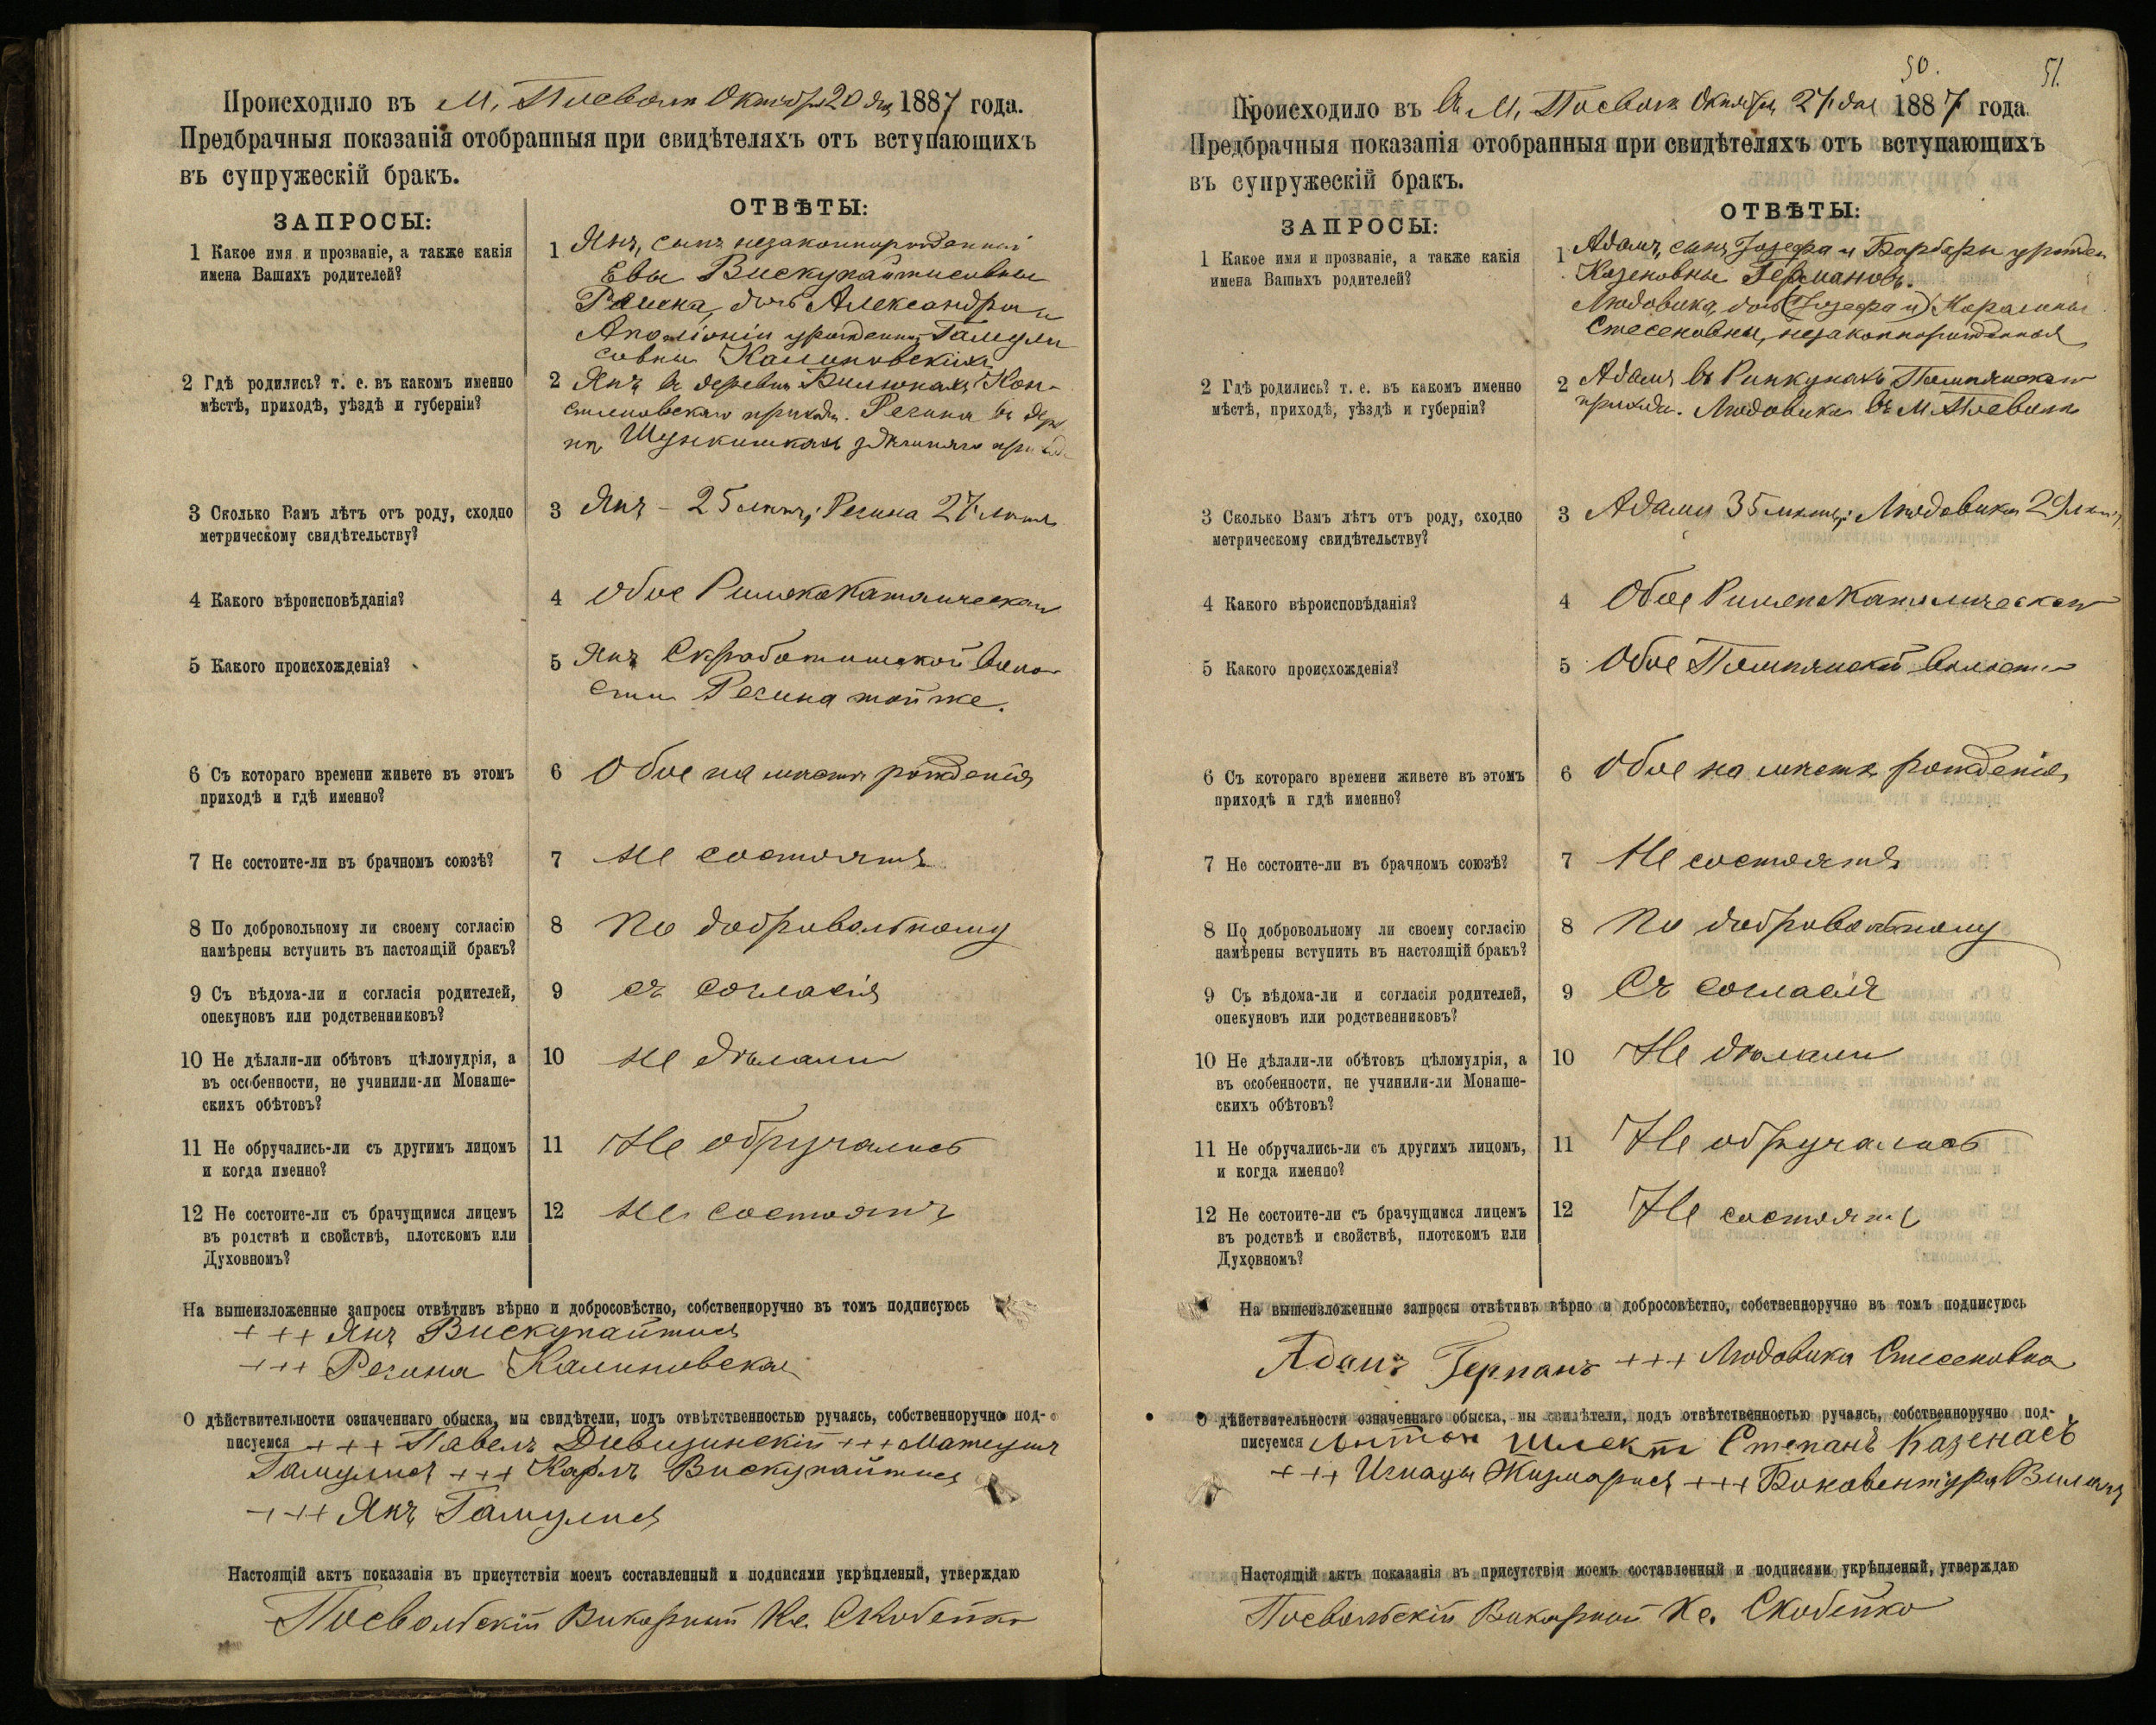 Происходило въ М. Посволи Октября 20 дня 1887 года.
Предбрачныя показанія отобранныя при свидѣтеляхъ отъ вступающихъ
въ супружескій бракъ.
ЗАПРОСЫ:
ОТВѢТЫ:
1 Какое имя и прозваніе, а также какія
имена Вашихъ родителей?
1 Янъ, сынъ незаконнорожденный
Евы Вискупайтисовны
дочь Александра и
Аполіоніи урожденной Гамули
совны Калиновскихъ
2 Гдѣ родились? т. е. въ какомъ именно
мѣстѣ, приходѣ, уѣздѣ и губерніи?
2 Янъ въ деревнѣ Кон-
стиновскаго прихода. Регина въ дерев
нѣ здѣшняго прихода
3 Сколько Вамъ лѣтъ отъ роду, сходно
метрическому свидѣтельству?
3 Янъ - 25 лѣтъ; Регина 27 лѣтъ
4 Какого вѣроисповѣданія?
4 Обое Римскокатолическаго
5 Какого происхожденія?
5 Янъ Скработишкской воло-
сти Регина той же.
6 Съ котораго времени живете въ этомъ
приходѣ и гдѣ именно?
6 Обое на мѣстѣ рожденія
7 Не состоите-ли въ брачномъ союзѣ?
7 Не состоятъ
8 По добровольному ли своему согласію
намѣрены вступить въ настоящій бракъ?
8 По добровольному
9 Съ вѣдома-ли и согласія родителей,
опекуновъ или родственниковъ?
9 Съ согласія
10 Не дѣлали-ли обѣтовъ цѣломудрія, а
въ особенности, не учинили-ли Монаше-
скихъ обѣтовъ?
10 Не дѣлали
11 Не обручались-ли съ другимъ лицомъ
и когда именно?
11 Не обручались
12 Не состоите-ли съ брачущимся лицемъ
въ родствѣ и свойствѣ, плотскомъ или
Духовномъ?
12 Не состоятъ
На вышеизложенные запросы отвѣтивъ вѣрно и добросовѣстно, собственноручно въ томъ подписуюсь
+++ Янъ Вискупайтисъ
+++ Регина Калиновская
О дѣйствительности означеннаго обыска, мы свидѣтели, подъ отвѣтственностью ручаясь, собственноручно под-
писуемся +++ Павелъ +++ Матеушъ
Гамулисъ +++ Карлъ Вискупайтисъ
+++ Янъ Гамулисъ
Настоящій актъ показанія въ присутствіи моемъ составленный и подписями укрѣпленый, утверждаю
Посвольскій Викарный Кс. Скобейко
50. 51.
Происходило въ въ М. Посволи Октября 27 дня 1887 года.
Предбрачныя показанія отобранныя при свидѣтеляхъ отъ вступающихъ
въ супружескій бракъ.
ЗАПРОСЫ:
ОТВѢТЫ:
1 Какое имя и прозваніе, а также какія
имена Вашихъ родителей?
1 Адамъ, сынъ Іозефа и Барбары урожден
Казеновны Германовъ.
Людовика, дочь (Іозефа и) Каролины
Стесеновны, незаконнорожденная
2 Гдѣ родились? т. е. въ какомъ именно
мѣстѣ, приходѣ, уѣздѣ и губерніи?
2 Адамъ въ Ринкунахъ Помпянскаго
прихода. Людовика въ М. Посволи
3 Сколько Вамъ лѣтъ отъ роду, сходно
метрическому свидѣтельству?
3 Адамъ 35 лѣтъ; Людовика 29 лѣтъ
4 Какого вѣроисповѣданія?
4 Обое Римскокатолическаго
5 Какого происхожденія?
5 Обое Помпянской волости
6 Съ котораго времени живете въ этомъ
приходѣ и гдѣ именно?
6 Обое на мѣстѣ рожденія
7 Не состоите-ли въ брачномъ союзѣ?
7 Не состоятъ
8 По добровольному ли своему согласію
намѣрены вступить въ настоящій бракъ?
8 По добровольному
9 Съ вѣдома-ли и согласія родителей,
опекуновъ или родственниковъ?
9 Съ согласія
10 Не дѣлали-ли обѣтовъ цѣломудрія, а
въ особенности, не учинили-ли Монаше-
скихъ обѣтовъ?
10 Не дѣлали
11 Не обручались-ли съ другимъ лицомъ,
и когда именно?
11 Не обручались
12 Не состоите-ли съ брачущимся лицемъ
въ родствѣ и свойствѣ, плотскомъ или
Духовномъ?
12 Не состоятъ
На вышеизложенные запросы отвѣтивъ вѣрно и добросовѣстно, собственноручно въ томъ подписуюсь
Адамъ Германъ +++ Людовика Стесеновна
О дѣйствительности означеннаго обыска, мы свидѣтели, подъ отвѣтственностью ручаясь, собственноручно под-
писуемся Антон Шлект Степанъ Казенасъ
+++ Игнацы Жизмарисъ +++ Бонавентура
Настоящій актъ показанія въ присутствія моемъ составленный и подписями укрѣпленый, утверждаю
Посвольскій Викарный Кс. Скобейко